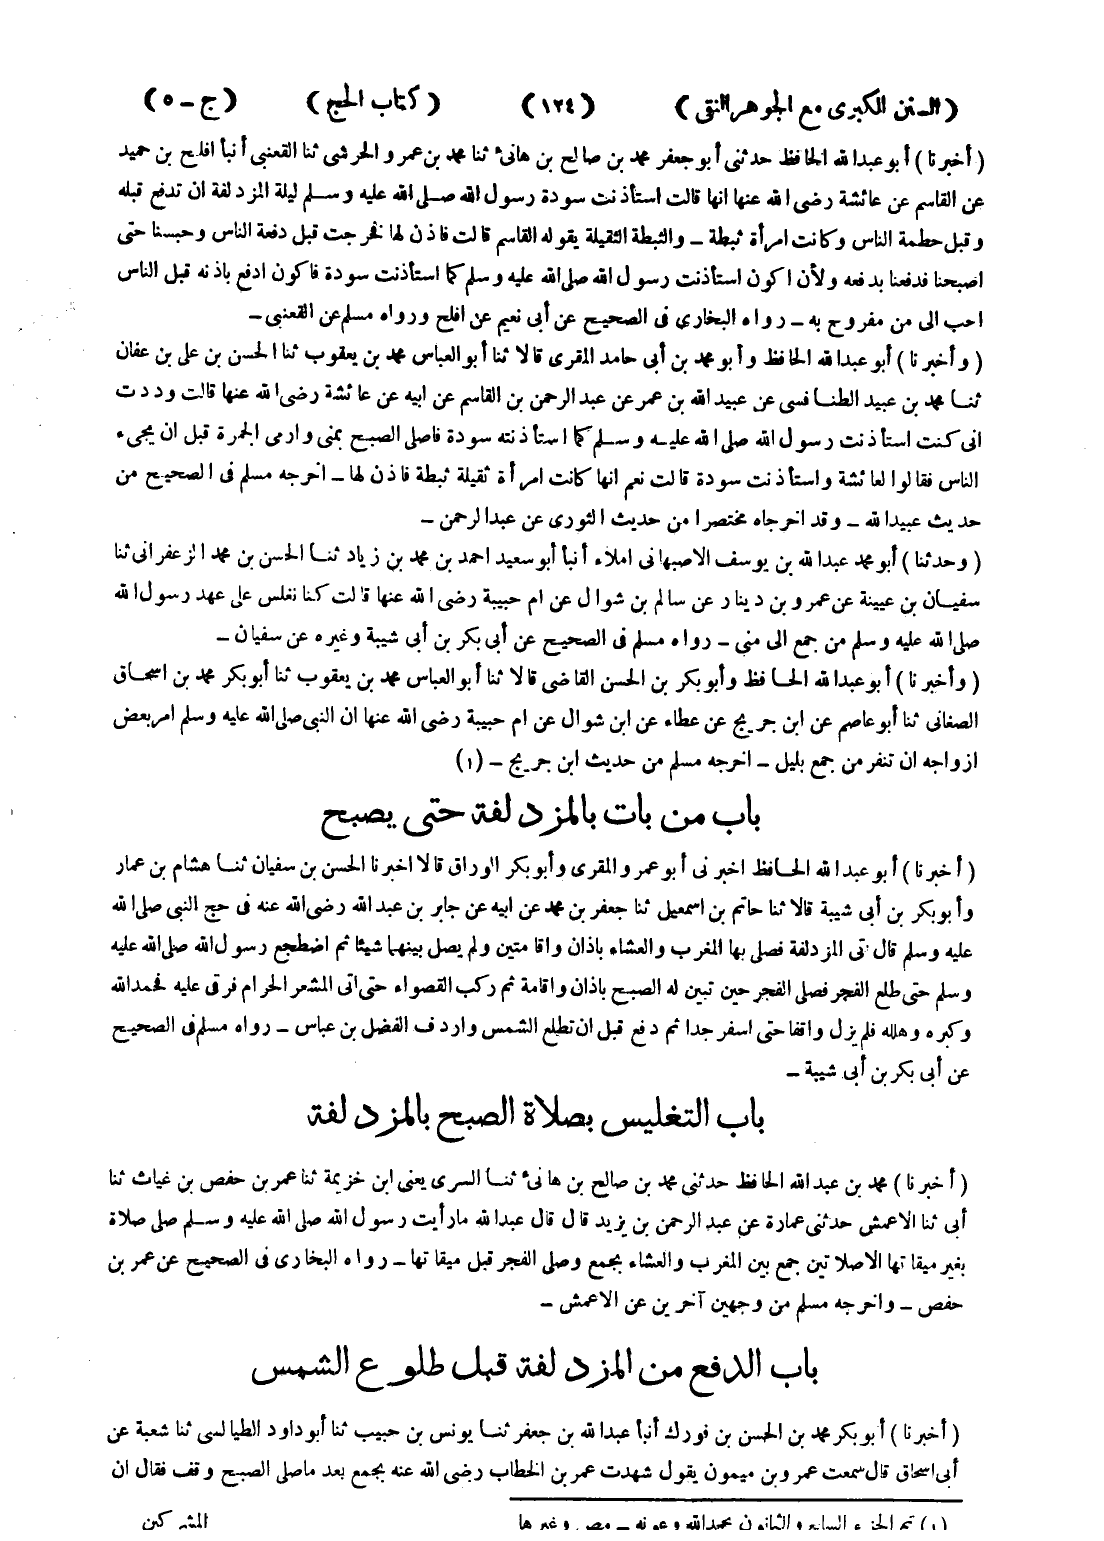 (السنن الكبرى مع الجوهر النقى) (١٢٤) (كتاب الحج) (ج - ٥)
(أخبرنا) أبو عبدالله الحافظ حدثنى أبو جعفر محمد بن صالح بن هانئ ثنا محمد بن عمرو الحرشى ثنا القعنبى أنبأ افلح بن حميد
عن القاسم عن عائشة رضى الله عنها انها قالت استأذنت سودة رسول الله صلى الله عليه وسلم ليلة المزدلفة ان تدفع قبله
وقبل حطمة الناس وكانت امرأة ثبطة - والثبطة الثقيلة يقوله القاسم قالت فاذن لها فخرجت قبل دفعة الناس وحبسنا حتى
اصبحنا فدفعنا بدفعه ولأن اكون استأذنت رسول الله صلى الله عليه وسلم كما استأذنت سودة فاكون ادفع باذنه قبل الناس
احب الى من مفروح به - رواه البخارى فى الصحيح عن أبى نعيم عن افلح ورواه مسلم عن القعنبى -
(وأخبرنا) أبو عبدالله الحافظ وأبو محمد بن أبى حامد المقرى قالا ثنا أبو العباس محمد بن يعقوب ثنا الحسن بن على بن عفان
ثنا محمد بن عبيد الطنافسى عن عبيد الله بن عمر عن عبد الرحمن بن القاسم عن ابيه عن عائشة رضى الله عنها قالت وددت
انى كنت استأذنت رسول الله صلى الله عليه وسلم كما استأذنته سودة فاصلى الصبح بمنى وارمى الجمرة قبل ان يجىء
الناس فقالوا لعائشة واستأذنت سودة قالت نعم انها كانت امرأة ثقيلة ثبطة فاذن لها - اخرجه مسلم فى الصحيح من
حديث عبيدالله - وقد اخرجاه مختصرا من حديث الثورى عن عبدالرحمن -
(وحدثنا) أبو محمد عبدالله بن يوسف الاصبهانى املاء أنبأ أبو سعيد احمد بن محمد بن زياد ثنا الحسن بن محمد الزعفرانى ثنا
سفيان بن عيينة عن عمرو بن دينار عن سالم بن شوال عن ام حبيبة رضى الله عنها قالت كنا نغلس على عهد رسول الله
صلى الله عليه وسلم من جمع الى منى - رواه مسلم فى الصحيح عن أبى بكر بن أبى شيبة وغيره عن سفيان -
(وأخبرنا) أبو عبدالله الحافظ وأبو بكر بن الحسن القاضى قالا ثنا أبو العباس محمد بن يعقوب ثنا أبو بكر محمد بن اسحاق
الصغانى ثنا أبو عاصم عن ابن جريج عن عطاء عن ابن شوال عن ام حبيبة رضى الله عنها ان النبى صلى الله عليه وسلم امر بعض
ازواجه ان تنفر من جمع بليل - اخرجه مسلم من حديث ابن جريج - (١)
باب من بات بالمزدلفة حتى يصبح
(أخبرنا) أبو عبدالله الحافظ اخبرنى أبو عمرو المقرى وأبو بكر الوراق قالا اخبرنا الحسن بن سفيان ثنا هشام بن عمار
وأبو بكر بن أبى شيبة قالا ثنا حاتم بن اسمعيل ثنا جعفر بن محمد عن ابيه عن جابر بن عبد الله رضى الله عنه فى حج النبى صلى الله
عليه وسلم قال تى المزدلفة فصلى بها المغرب والعشاء باذان واقامتين ولم يصل بينهما شيئا ثم اضطجع رسول الله صلى الله عليه
وسلم حتى طلع الفجر فصلى الفجر حين تبين له الصبح باذان واقامة ثم ركب القصواء حتى اتى المشعر الحرام فرقى عليه فحمدالله
وكبره وهلله فلم يزل واقفا حتى اسفر جدا ثم دفع قبل ان تطلع الشمس واردف الفضل بن عباس - رواه مسلم فى الصحيح
عن أبى بكر بن أبى شيبة -
باب التغليس بصلاة الصبح بالمزدلفة
(أخبرنا) محمد بن عبدالله الحافظ حدثنى محمد بن صالح بن هانئ ثنا السرى يعنى ابن خزيمة ثنا عمر بن حفص بن غياث ثنا
أبى ثنا الاعمش حدثنى عمارة عن عبد الرحمن بن يزيد قال قال عبدالله ما رأيت رسول الله صلى الله عليه وسلم صلى صلاة
بغير ميقاتها الاصلاتين جمع بين المغرب والعشاء بجمع وصلى الفجر قبل ميقاتها - رواه البخارى فى الصحيح عن عمر بن
حفص - واخرجه مسلم من وجهين آخرين عن الاعمش -
باب الدفع من المزدلفة قبل طلوع الشمس
(أخبرنا) أبو بكر محمد بن الحسن بن فورك أنبأ عبدالله بن جعفر ثنا يونس بن حبيب ثنا أبو داود الطيالسى ثنا شعبة عن
أبى اسحاق قال سمعت عمرو بن ميمون يقول شهدت عمر بن الخطاب رضى الله عنه بجمع بعد ماصلى الصبح وقف فقال ان
(١) تم الجزء السابع والثمانون بحمدالله وعونه - مص وغيرها المشركين